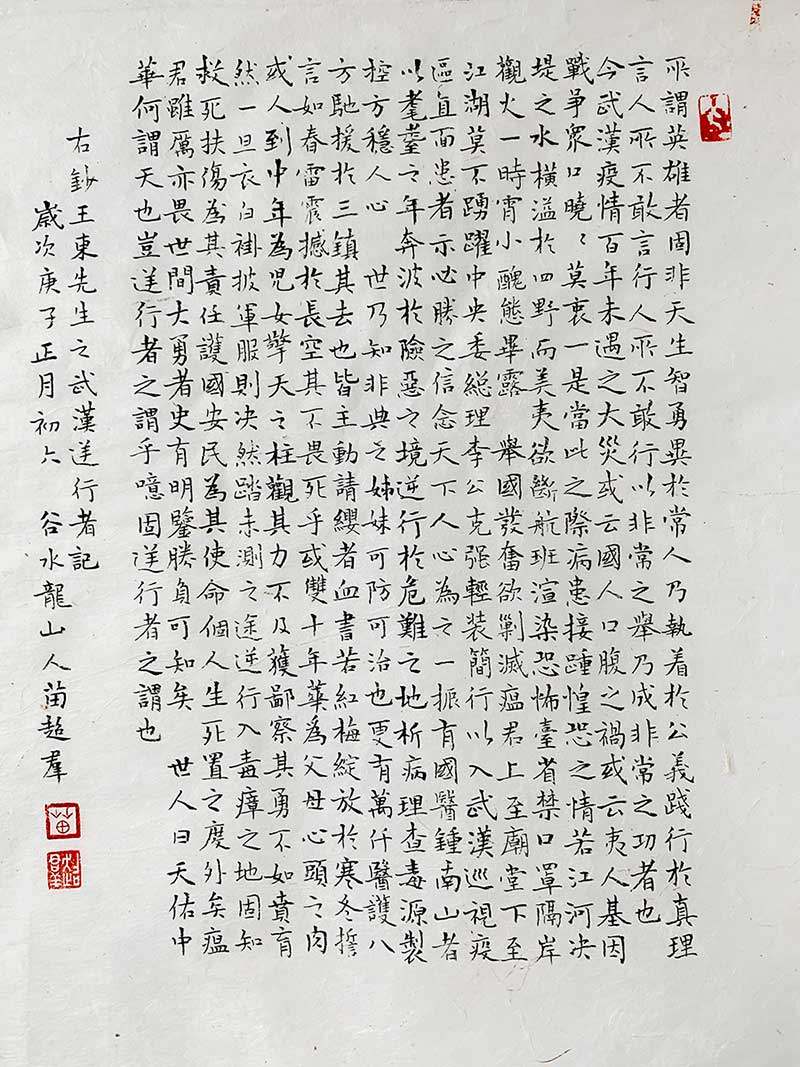 所謂英雄者固非天生智勇異於常人乃執着於公義踐行於真理
言人所不敢言行人所不敢行以非常之舉乃成非常之功者也
今武漢疫情百年未遇之大災或云國人口腹之禍或云夷人基因
戰爭眾口曉〻莫衷一是當此之際病患接踵惶恐之情若江河决
堤之水橫溢於四野而美夷欲斷航班渲染恐怖臺省禁口罩隔岸
觀火一時宵小醜態畢露 舉國發奮欲剿滅瘟君上至廟堂下至
江湖莫不踴躍中央委總理李公克强輕装簡行以入武漢巡視疫
區直面患者示必勝之信念天下人心為之一振有國醫鍾南山者
以耄耋之年奔波於險惡之境逆行於危難之地析病理查毒源製
控方穩人心 世乃知非典之姊妹可防可治也更有萬仟醫護八
方馳援於三鎮其去也皆主動請纓者血書若紅梅綻放於寒冬誓
言如春雷震撼於長空其不畏死乎或雙十年華為父母心頭之肉
或人到中年為兒女擎天之柱觀其力不及獲鄙察其勇不如賁育
然一旦衣白褂披軍服則决然踏未測之途逆行入毒瘴之地固知
救死扶傷為其責任護國安民為其使命個人生死置之度外矣瘟
君雖厲亦畏世間大勇者史有明鑒勝負可知矣 世人曰天佑中
華何謂天也豈逆行者之謂乎噫固逆行者之謂也
右鈔王東先生之武漢逆行者記
歲次庚子正月初六 谷水龍山人苗超羣
苗
超羣